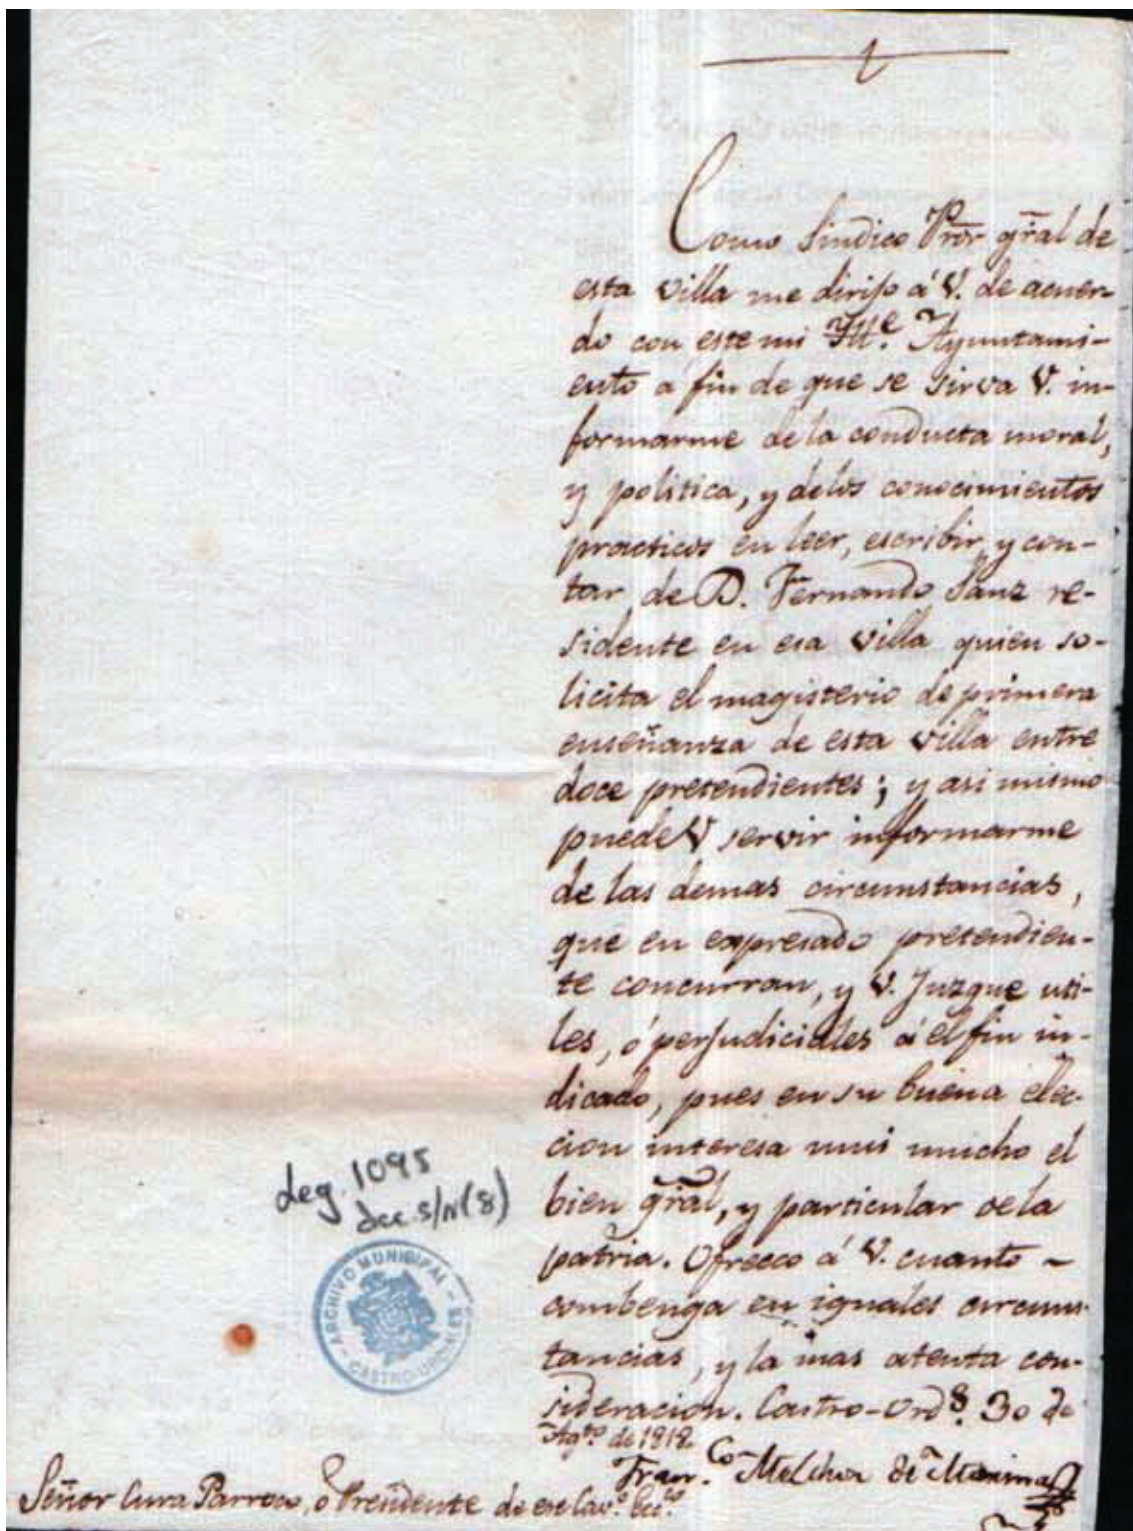 Como Sindico Pror gral de
esta villa me dirijo á V. de acuer-
do con este mi Ille. Ayuntami-
ento a fin de que se sirva V. in-
formarme de la conducta moral,
y politica, y delos conocimientos
practicos en leer, escribir, y con-
tar de D. Fernando Sanz re-
sidente en esa villa quien so-
licita el magisterio de primera
enseñanza de esta villa entre
doce pretendientes; y asi mismo
puede V servir informarme
de las demas circunstancias,
que en expresado pretendien-
te concurran, y V. Juzgue uti-
les, ó perjudiciales á el fin in-
dicado, pues en su buena elec-
cion interesa mui mucho el
bien gral, y particular dela
patria. Ofrezco á V. cuanto -
combenga en iguales circuns-
tancias, y la mas atenta con-
sideracion. Castro-Ords. 30 de
Agto. de 1818.
Franco. Melchor de
Señor Cura Parroco, ó Presidente de ese Cavo. Ecco.
Leg. 1095
doc. s/n (8)
ARCHIVO MUNICIPAL - CASTRO-URDIALES -